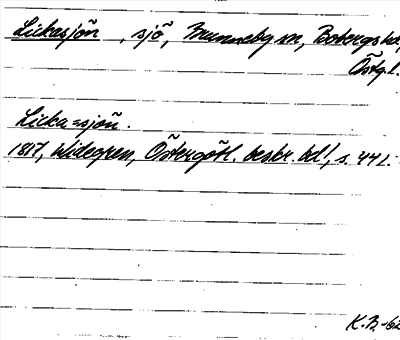 Lickasjön, sjö, Brunneby sn, Bobergs hd,
Östg.l.
Licka=sjön.
1817, Widegren, Östergötl. beskr. bd 1, s. 441.
K.B-62